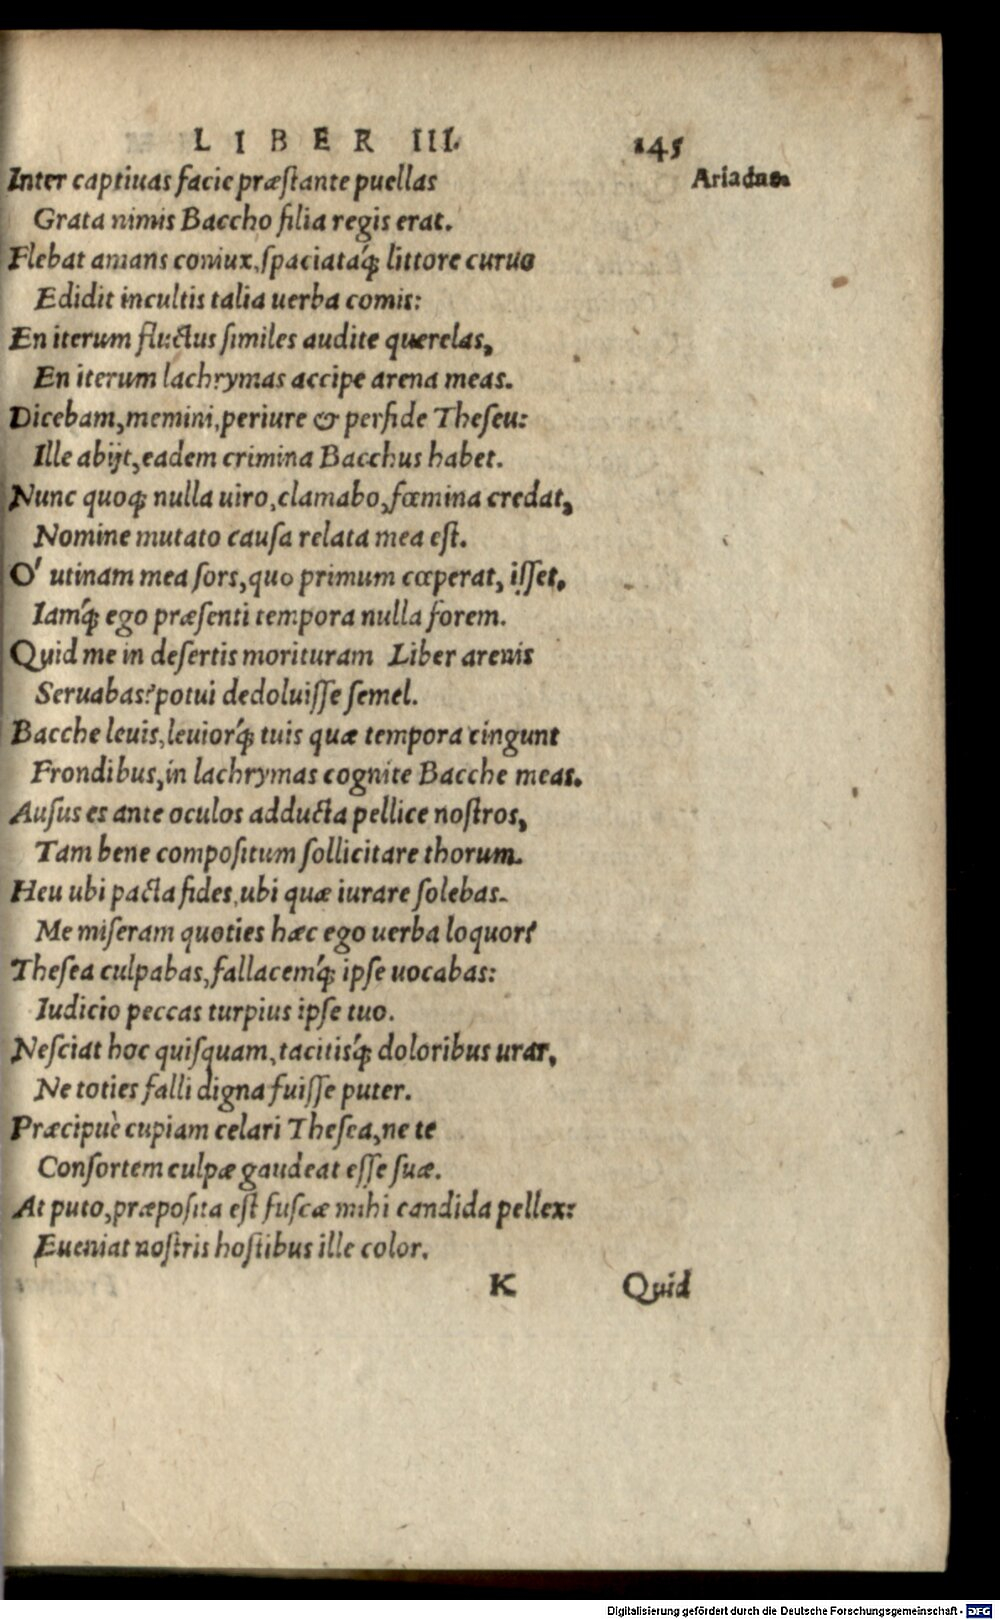 LIBER III. 145
Inter captiuas facie præstante puellas Ariadna
Grata nimis Baccho filia regis erat.
Flebat amans coniux, spaciatáq; littore curuo
Edidit incultis talia uerba comis:
En iterum fluctus similes audite querelas,
En iterum lachrymas accipe arena meas.
Dicebam, memini, periure & perfide Theseu:
Ille abijt, eadem crimina Bacchus habet.
Nunc quoq; nulla uiro, clamabo, fœmina credat,
Nomine mutato causa relata mea est.
O' utinam mea sors, quo primum cœperat, isset,
Iamq́; ego præsenti tempora nulla forem.
Quid me in desertis morituram Liber arenis
Seruabas? potui dedoluisse semel.
Bacche leuis, leuiorq́; tuis quæ tempora cingunt
Frondibus, in lachrymas cognite Bacche meas.
Ausus es ante oculos adducta pellice nostros,
Tam bene compositum sollicitare thorum.
Heu ubi pacta fides, ubi quæ iurare solebas.
Me miseram quoties hæc ego uerba loquor?
Thesea culpabas, fallacemq́; ipse uocabas:
Iudicio peccas turpius ipse tuo.
Nesciat hoc quisquam, tacitisq́; doloribus urar,
Ne toties falli digna fuisse puter.
Præcipuè cupiam celari Thesea, ne te
Consortem culpæ gaudeat esse suæ.
At puto, præposita est fuscæ mihi candida pellex:
Eueniat nostris hostibus ille color.
K Quid
Digitalisierung gefördert durch die Deutsche Forschungsgemeinschaft - DFG